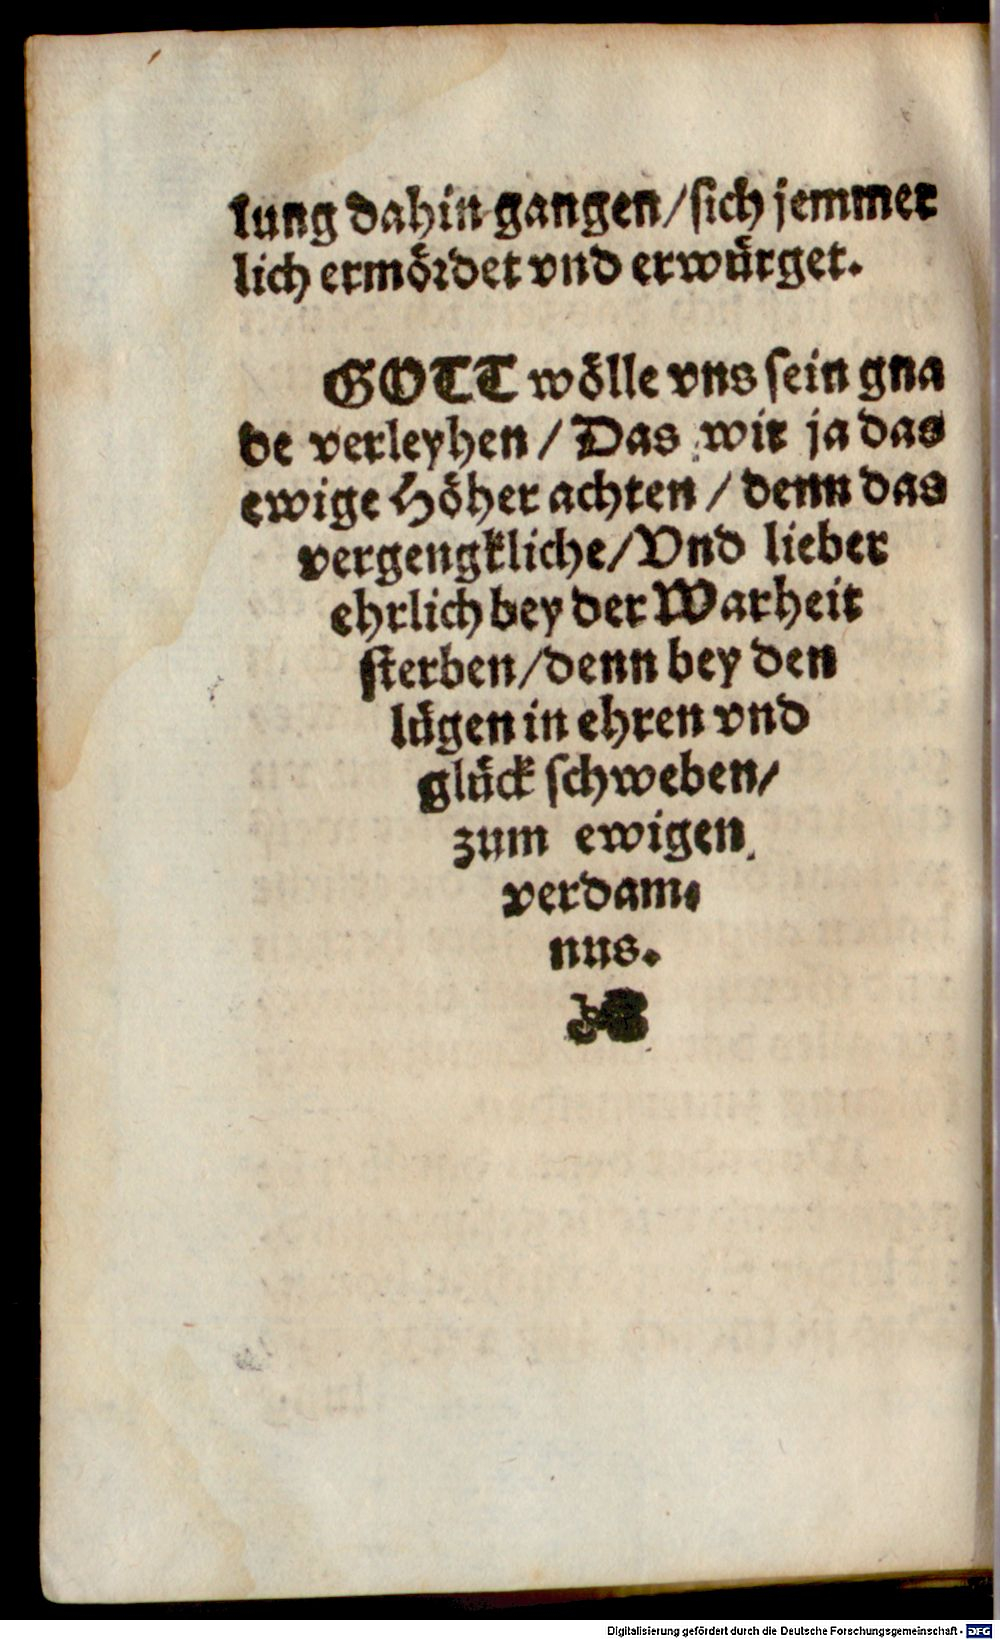 lung dahin gangen/sich jemmer
lich ermördet vnd erwürget.
GOTT wölle vns sein gna
de verleyhen/Das wir ja das
ewige Höher achten/denn das
vergengkliche/Vnd lieber
ehrlich bey der Warheit
sterben/denn bey den
lügen in ehren vnd
glück schweben/
zum ewigen
verdam⸗
nus.
Digitalisierung gefördert durch die Deutsche Forschungsgemeinschaft - DFG